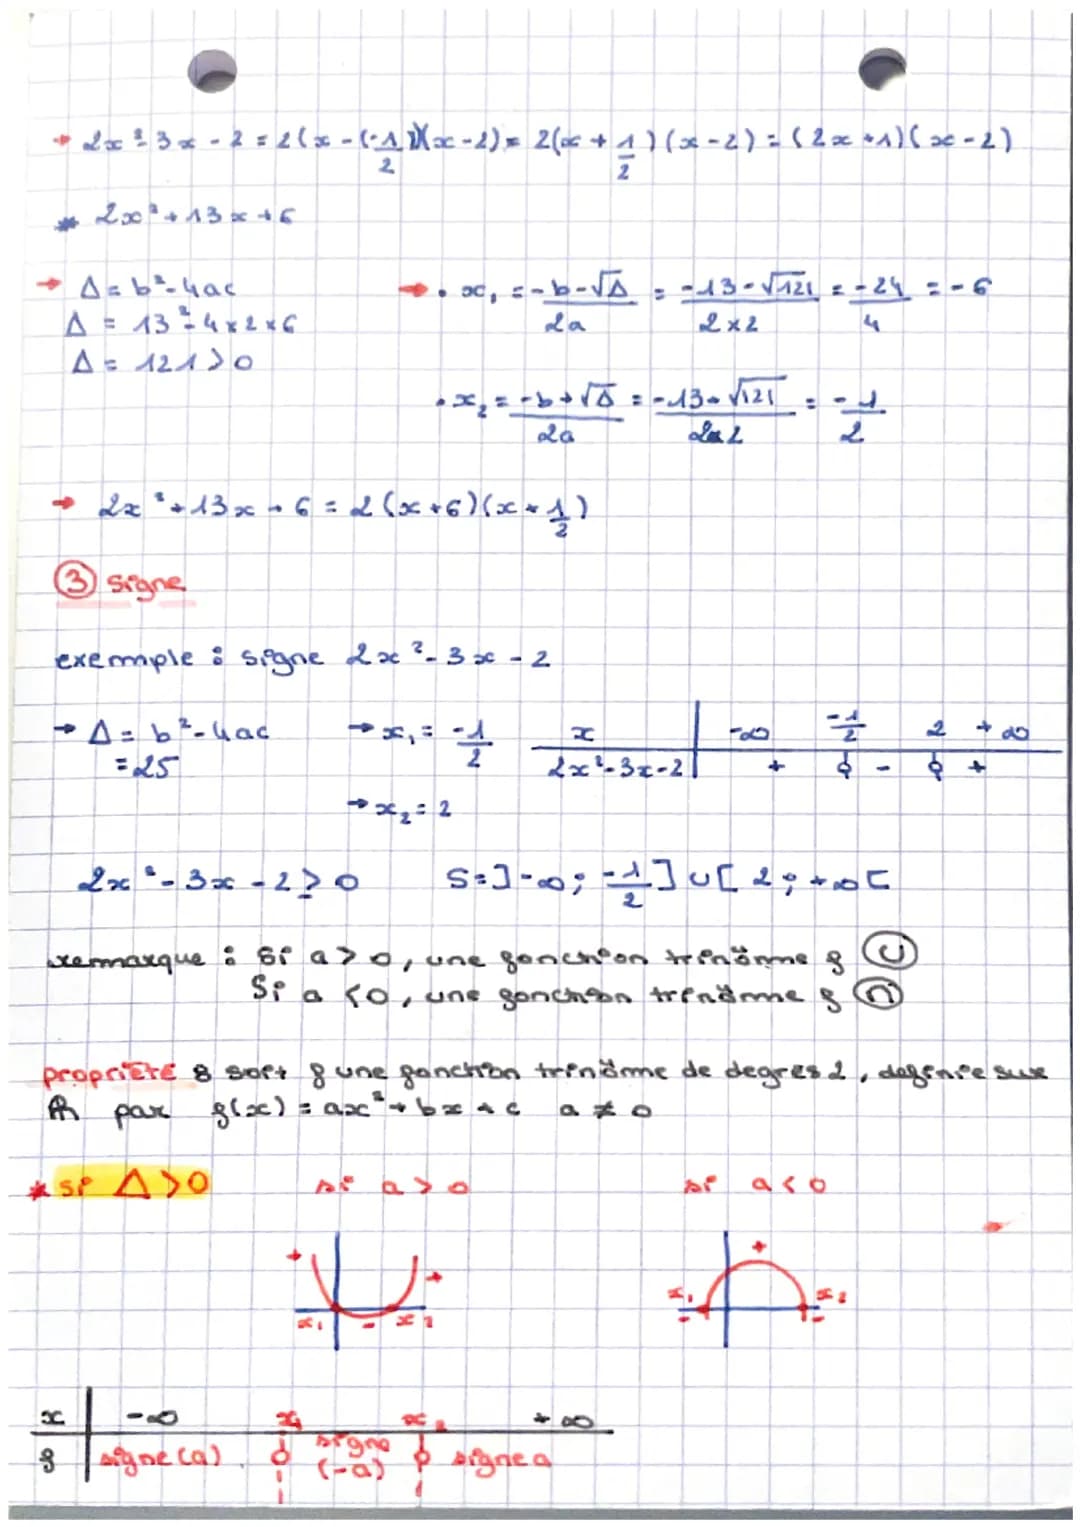 → 2x²-3x-2 = 2(x-(-1/2))(x-2) = 2(x+1/2)(x-2) = (2x+1)(x-2)
* 2x²+13x+6
→ Δ = b²-4ac
Δ = 13²-4x2x6
Δ = 121>0
→ • x₁ = -b-√Δ/2a = -13-√121/2x2 = -24/4 = -6
• x₂ = -b+√Δ/2a = -13+√121/2x2 = -1/2
→ 2x²+13x+6 = 2(x+6)(x+1/2)
③ Signe
exemple : signe 2x²-3x-2
→ Δ = b²-4ac
=25
→ x₁ = -1/2
→ x₂ = 2
x -∞ -1/2 2 +∞
2x²-3x-2 + 0 - 0 +
2x²-3x-2≥0 S=]-∞; -1/2]∪[2;+∞[
remarque : Si a>0, une fonction trinôme f ∪
Si a<0, une fonction trinôme f ∩
propriété : soit f une fonction trinôme de degres 2, definie sur
ℝ par f(x) = ax²+bx+c a≠0
* si Δ>0 si a>0 si a<0
+ + x₁ - x₂
+ x₁ x₂ - -
x -∞ x₁ x₂ +∞
f signe(a) 0 signe (-a) 0 signe a